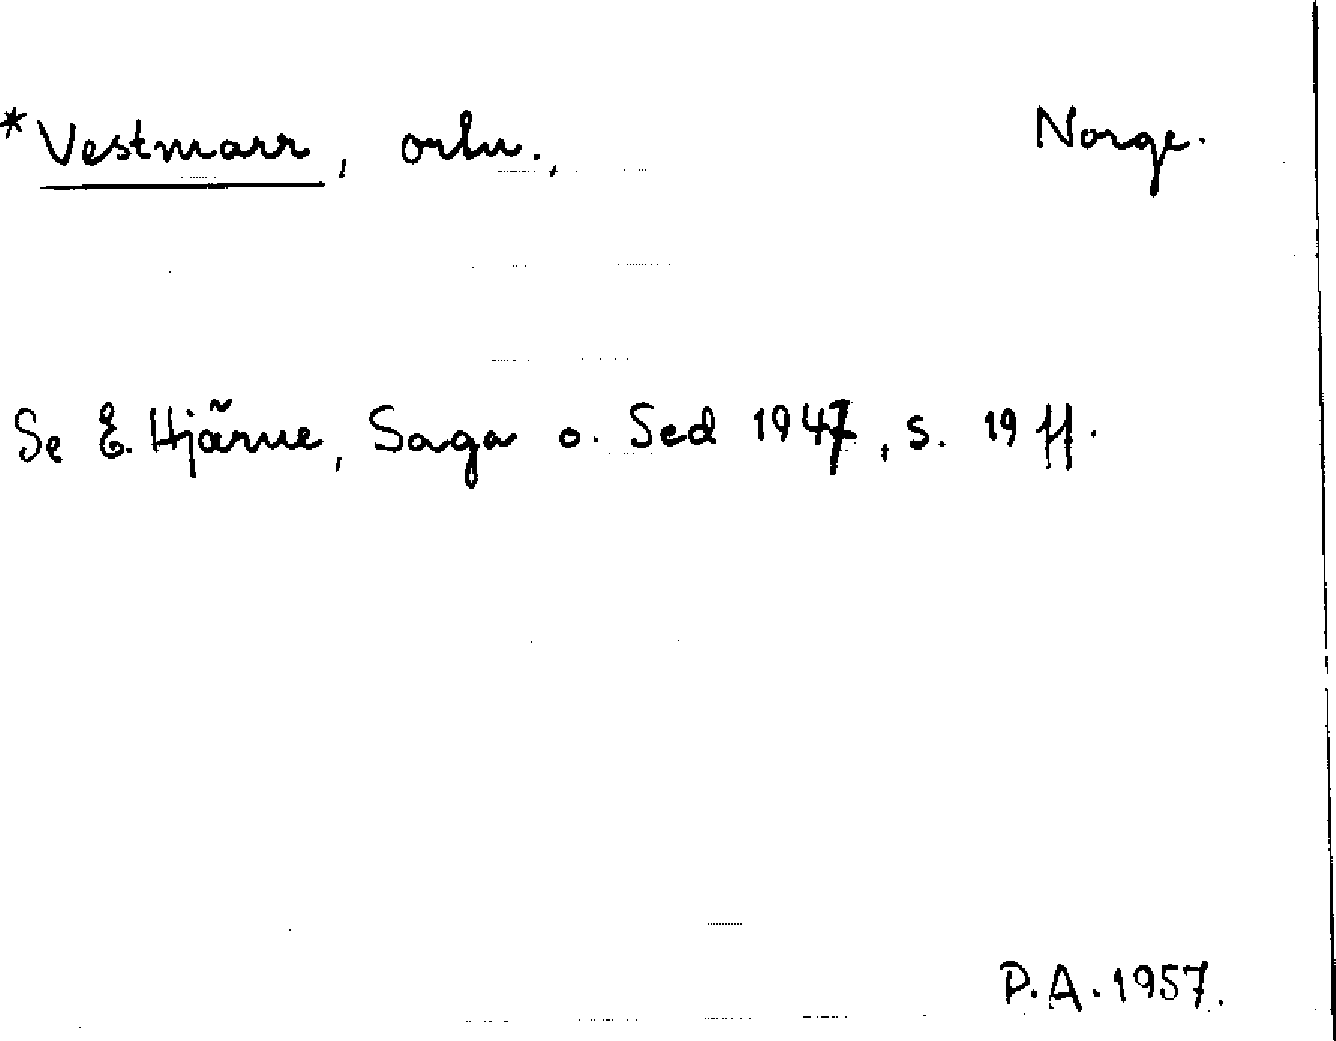 *Vestmarr, ortn., Norge.
Se E. Hjärne, Saga o. Sed 1947, s. 19 ff.
P.A. 1957.